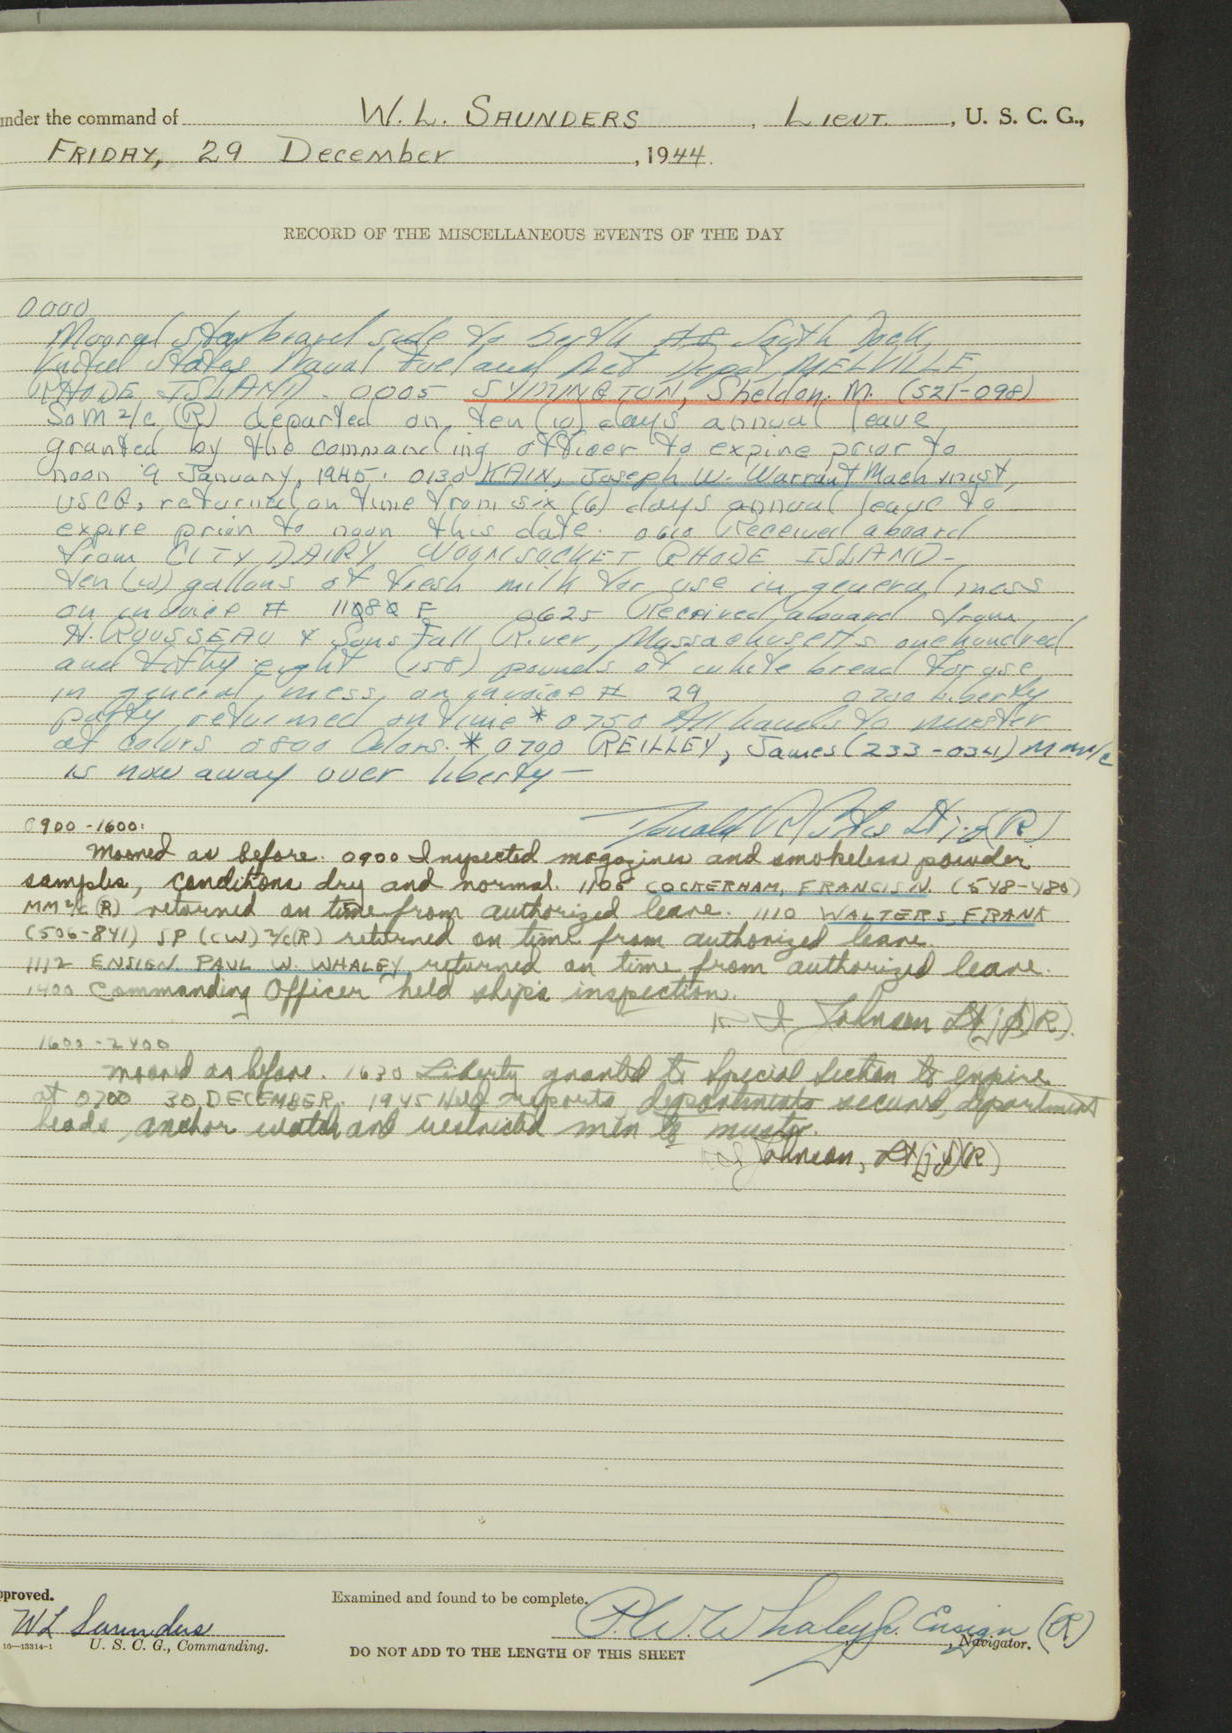 under the command of W. L. SAUNDERS, LIEUT., U. S. C. G.,
FRIDAY, 29 December, 1944.
RECORD OF THE MISCELLANEOUS EVENTS OF THE DAY
0000
Moored starboard side to berth South Dock,
United States Naval Fuel and Net Depot, MELVILLE,
RHODE ISLAND. 0005 SYMINGTON, Sheldon. M. (521-098)
SoM 2/c (R) departed on ten (10) days annual leave
granted by the commanding officer to expire prior to
noon 9 January, 1945. 0130 KAIN, Joseph W. Warrant Machinist,
USCG, returned on time from six (6) days annual leave to
expire prior to noon this date. 0610 Received aboard
from CITY DAIRY WOONSOCKET RHODE ISLAND-
ten (10) gallons of fresh milk for use in general mess
on invoice # 11080 F 0625 Received aboard from
H. ROUSSEAU & Sons Fall River, Massachusetts one hundred
and fifty eight (158) pounds of white bread for use
in general mess, on invoice # 29 0700 Liberty
party returned on time * 0750 All hands to muster
at colors 0800 Colors. * 0700 REILLEY, James (233-034) MM1/c
is now away over liberty —
Donald Lt j.g (R)
0900 - 1600:
Moored as before. 0900 Inspected magazines and smokeless powder
samples, conditions dry and normal. 1105 COCKERHAM, FRANCIS N. (548-480)
MM2/c (R) returned on time from authorized leave. 1110 WALTERS, FRANK
(506-841) SP (CW) 2/c(R) returned on time from authorized leave.
1112 ENSIGN PAUL W. WHALEY returned on time from authorized leave.
1400 Commanding Officer held ship's inspection.
Johnson Lt(jg)(R).
1600 - 2400
Moored as before. 1630 Liberty granted to Special Section to expire
at 0700 30 DECEMBER. 1945 Held reports departments secured, department
heads, anchor watch and restricted men to muster.
Johnson, Lt(jg)(R)
pproved.
W L Saunders
U. S. C. G., Commanding.
16—13314-1
Examined and found to be complete.
P. W. Whaley Jr. Ensign (R)
, Navigator.
DO NOT ADD TO THE LENGTH OF THIS SHEET